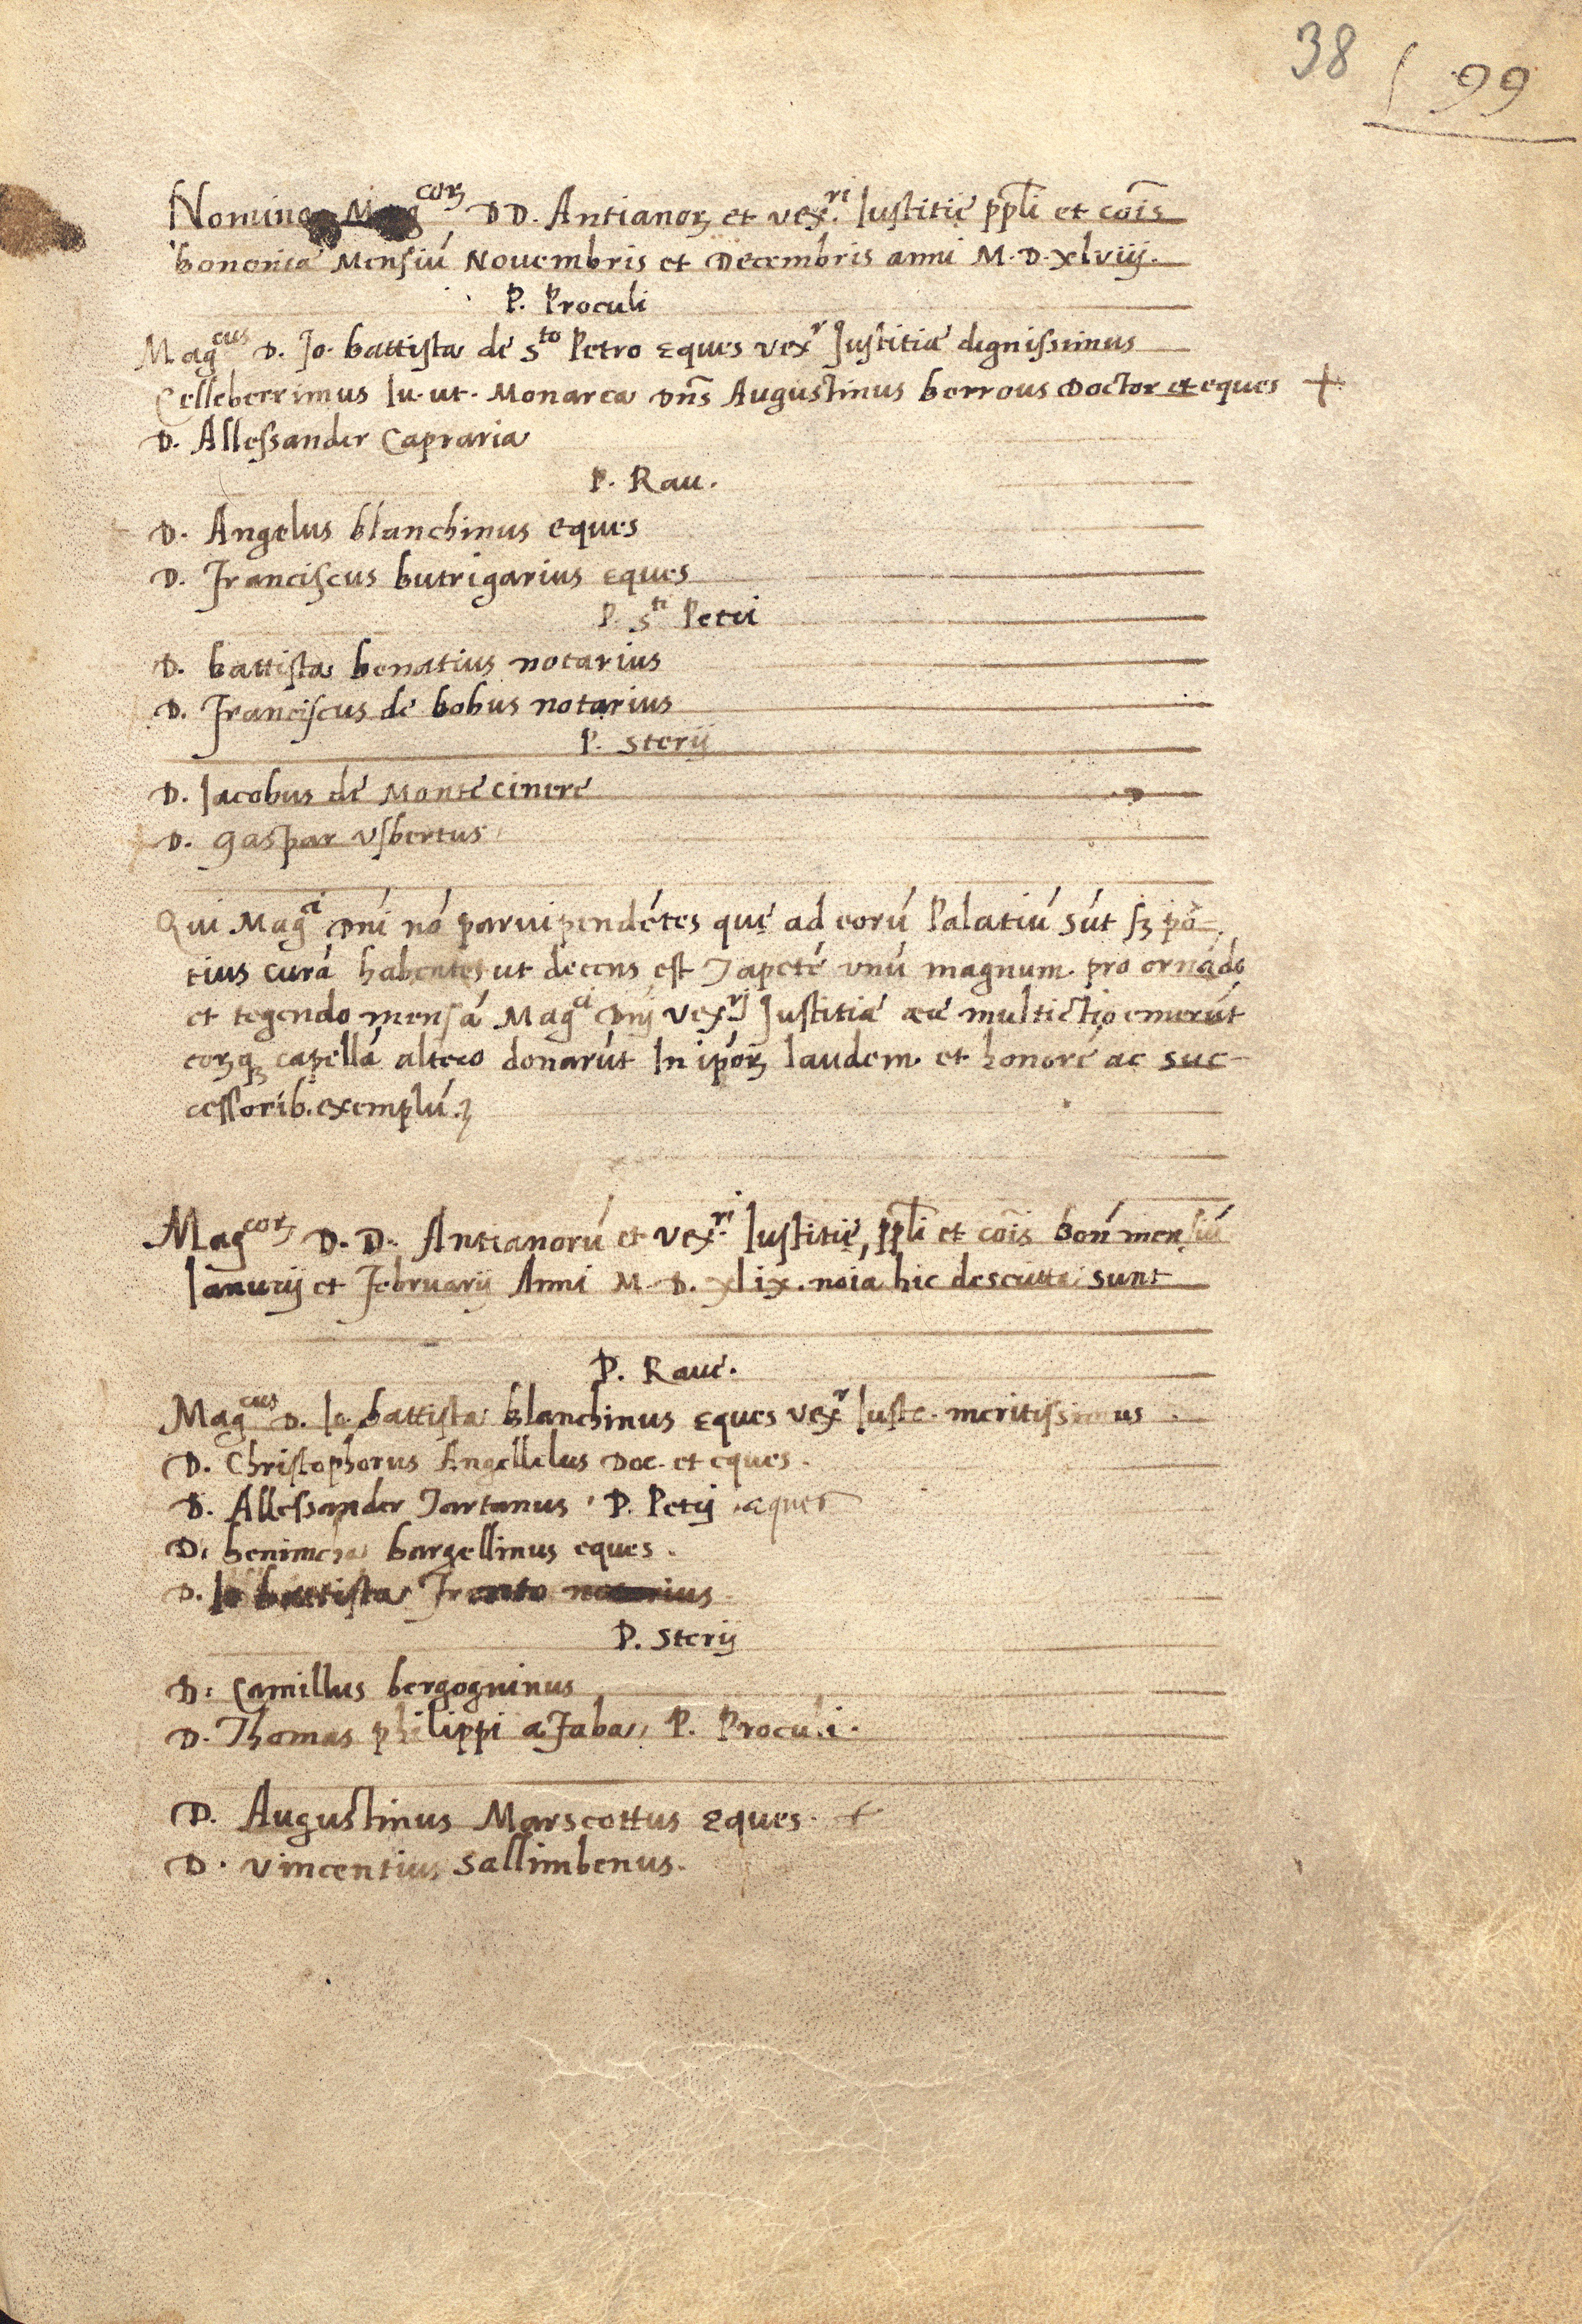 38 99
Nomina Mag^corꝫ DD. Antianorꝫ et vex^ri Iustitię ppli et cois
bononiae Mensiū Novembris et Decembris anni M.D.xlviij.
P. Proculi
Mag^cus D. Jo. battista de S^to Petro eques vex^r Justitiae dignissimus
Celleberrimus Iu. ut. Monarca Dns Augustinus berrous Doctor et eques +
D. Allessander Capraria
P. Rau.
D. Angelus blanchinus eques
D. Franciscus butrigarius eques
P. S^ti Petri
D. battista benatius notarius
D. Franciscus de bobus notarius
P. Sterij
D. Iacobus de Monte cinere
D. gaspar usbertus
Qui Mag^ci Dni nō parvipendētes quę ad eorū Palatiū sūt sꝫ po-
tius curā habentes ut decens est Tapetē unū magnum pro ornādo
et tegendo mensā Mag^ci Dnj vex^rj Justitiae emerūt
eorꝫqꝫ capellā donarūt In ipōrꝫ laudem et honorē ac suc-
cessorib. exemplū.
Mag^corꝫ D.D. Antianorū et vex^ri Iustitię, ppli et cois bon mensiū
Ianuarij et Februarij Anni M.D.xlix. noia hic descritta sunt
P. Rave.
Mag^cus D. Io. battista blanchinus eques vex^r Iuste. meritissimus
D. Christophorus Angellelus Doc. et eques.
D. Allessander Tartanus P. Petij eques
D. bargellinus eques.
D. Io battista notarius
P. Sterij
D. Camillus bergogninus
D. Thomas philippi a Faba P. Proculi.
D. Augustinus Marscottus eques. +
D. Vincentius Sallimbenus.